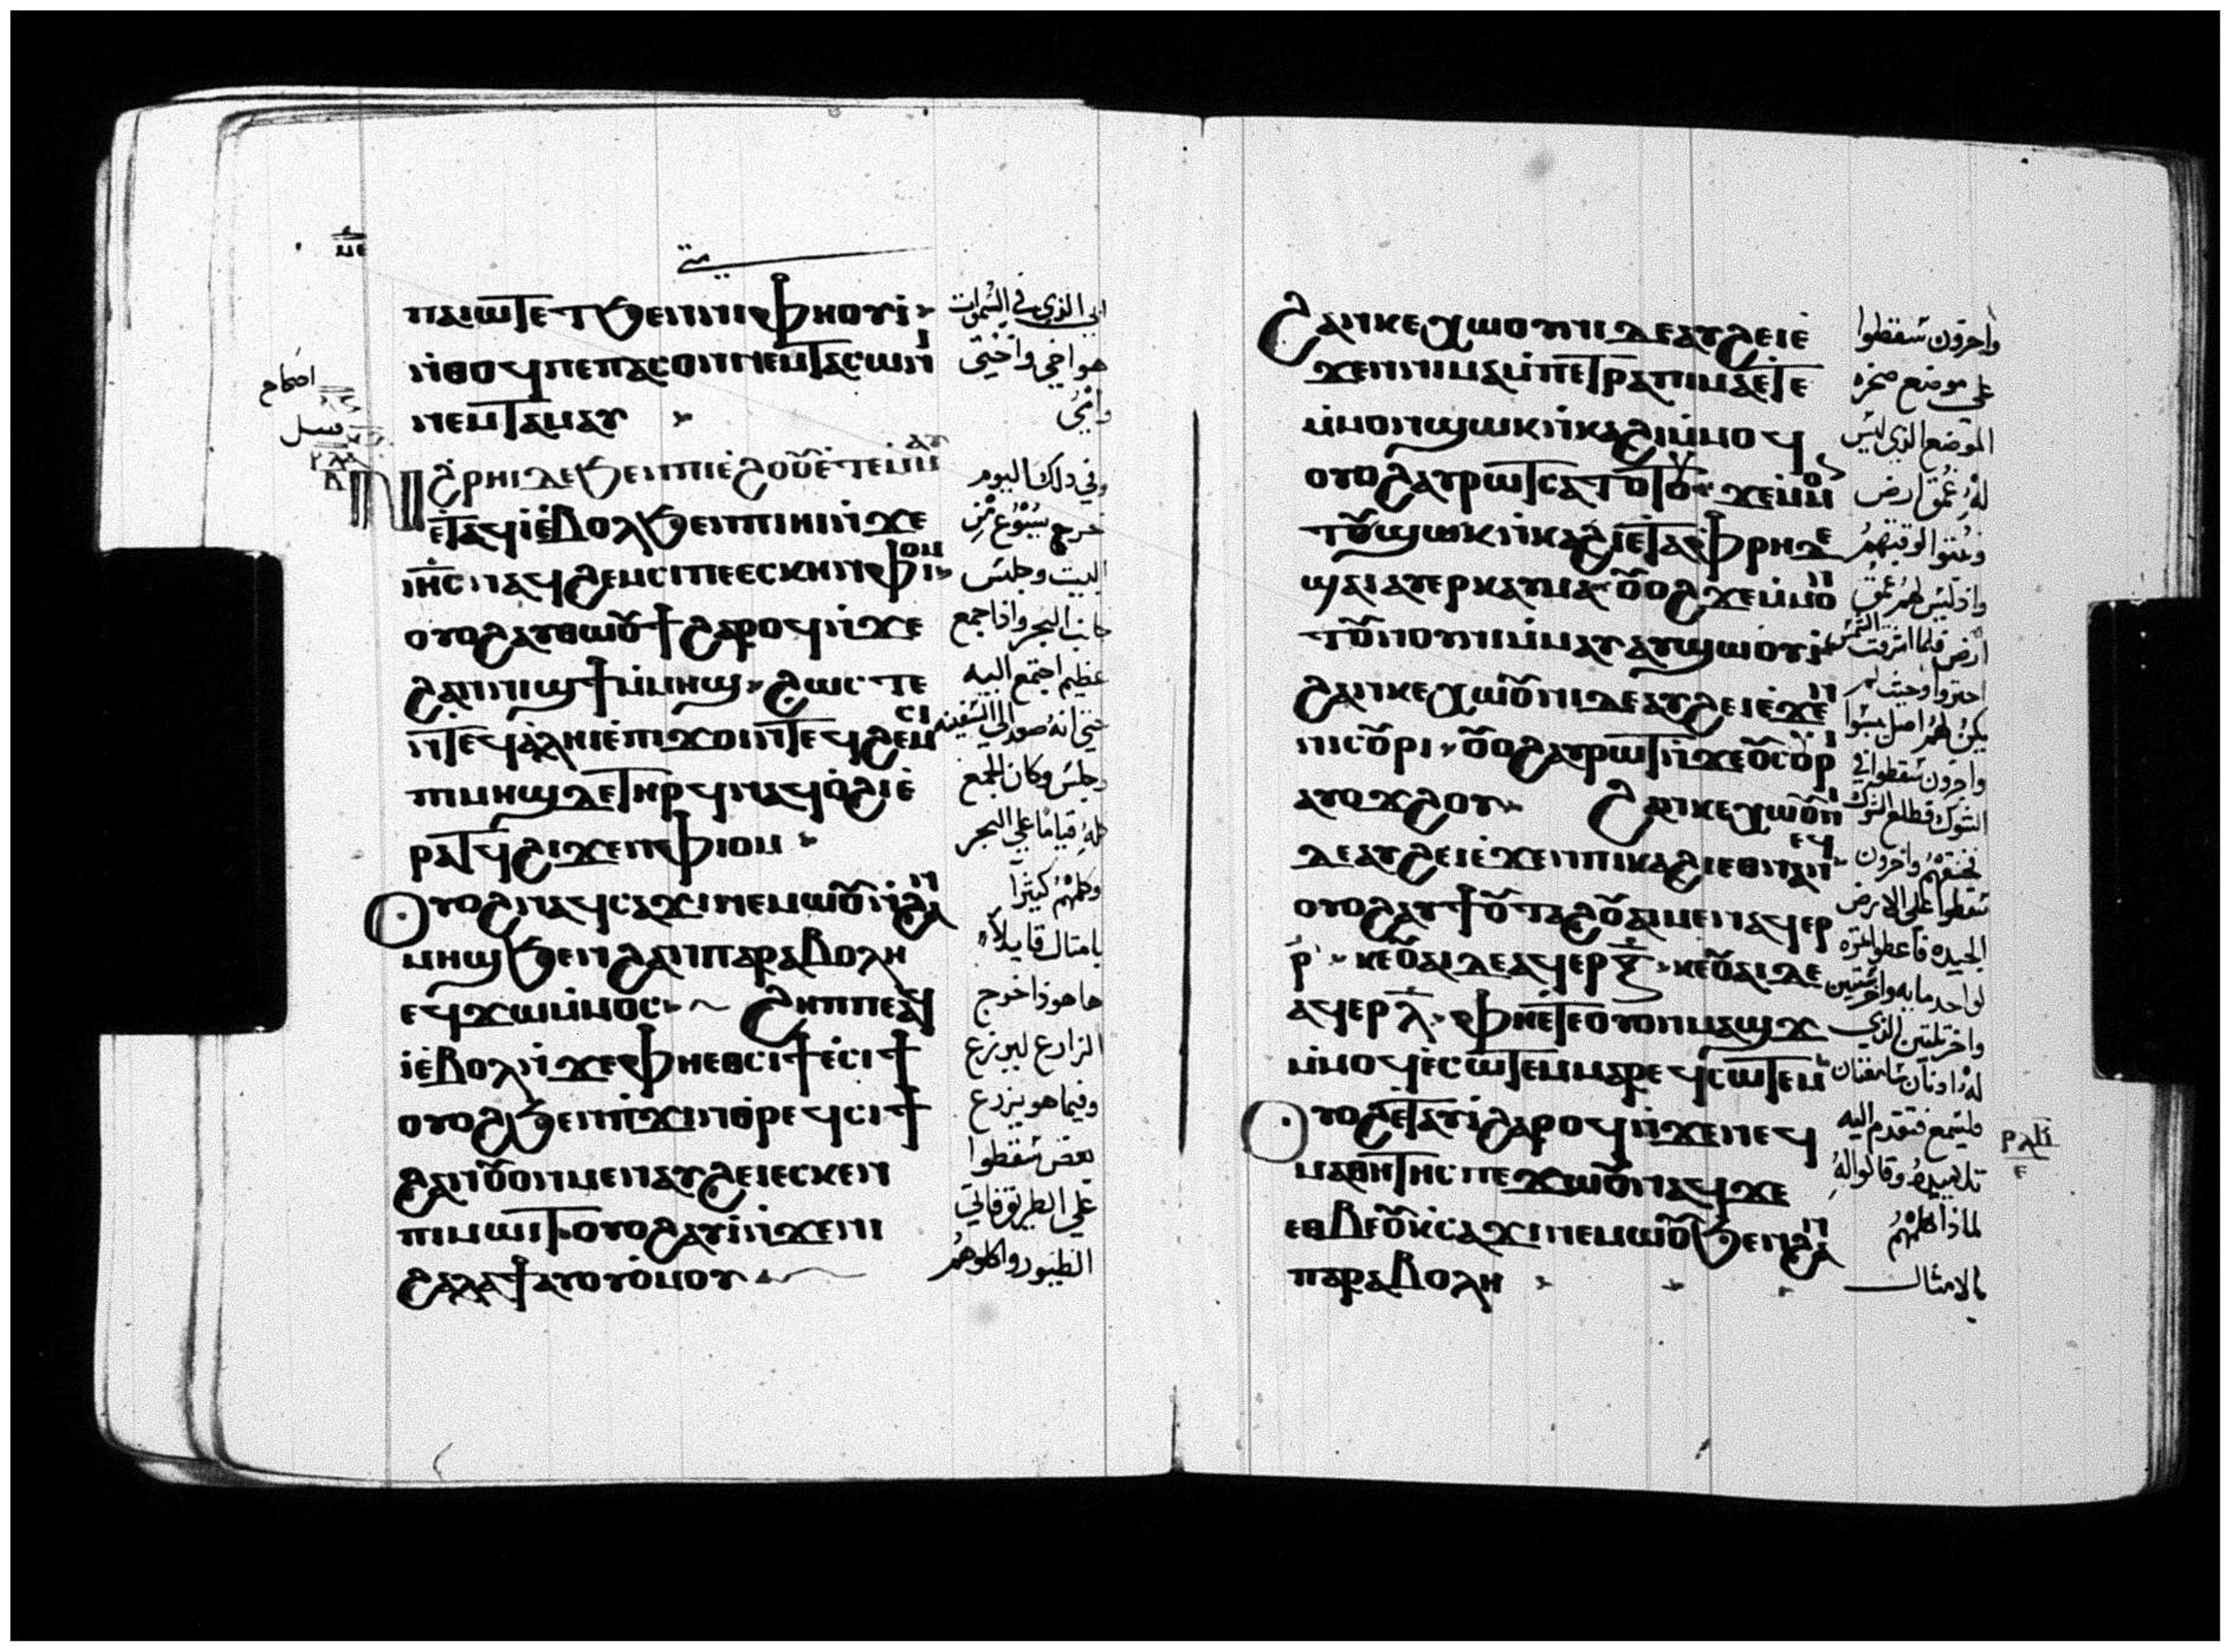 ⲙⲉ
متى
ⲡⲁⲓⲱⲧⲉⲧϧⲉⲛⲛⲓⲫⲏⲟⲩⲓ̀
ⲛ̀ⲑⲟϥⲡⲉⲡⲁⲥⲟⲛⲛⲉⲙⲧⲁⲥⲱⲛⲓ
ⲛⲉⲙⲧⲁⲙⲁⲩ
ⲛ̀ϩⲣⲏⲓⲇⲉϧⲉⲛⲡⲓⲉ̀ϩⲟⲟⲩⲉ̀ⲧⲉⲙ̀ⲙⲁⲩ
ⲉ̀ⲧⲁϥⲓⲉ̀ⲃⲟⲗϧⲉⲛⲡⲓⲏⲓⲛ̀ϫⲉ
ⲓⲏ̅ⲥⲛⲁϥϩⲉⲙⲥⲓⲡⲉⲉⲥⲕⲉⲛⲫⲓⲟⲙ
ⲟⲩⲟϩⲁⲩⲑⲱⲟⲩϯϩⲁⲣⲟϥⲛ̀ϫⲉ
ϩⲁⲛⲛⲓϣϯⲙ̀ⲙⲏϣ ϩⲱⲥⲧⲉ
ⲛ̀ⲧⲉϥⲁ̀ⲗⲏⲓⲉ̀ⲡⲓϫⲟⲓⲛ̀ⲧⲉϥϩⲉⲙⲥⲓ
ⲡⲓⲙⲏϣⲇⲉⲧⲏⲣϥⲛⲁϥⲟ̀ϩⲓⲉ̀
ⲣⲁⲧϥϩⲓϫⲉⲛⲫⲓⲟⲙ
ⲟⲩⲟϩⲛⲁϥⲥⲁϫⲓⲛⲉⲙⲱⲟⲩⲛ̀ϩⲁⲛ
ⲙⲏϣϧⲉⲛϩⲁⲛⲡⲁⲣⲁⲃⲟⲗⲏ
ⲉϥϫⲱⲙ̀ⲙⲟⲥ ϩⲏⲡⲡⲉⲁϥ
ⲓⲉ̀ⲃⲟⲗⲛ̀ϫⲉⲫⲏⲉⲑⲥⲓϯⲉ̀ⲥⲓϯ
ⲟⲩⲟϩϧⲉⲛⲡ̀ϫⲓⲛⲑⲣⲉϥⲥⲓϯ
ϩⲁⲛⲟⲩⲟⲛⲙⲉⲛⲁⲩϩⲉⲓⲉⲥⲕⲉⲛ
ⲡⲓⲙⲱⲓⲧ ⲟⲩⲟϩⲁⲩⲓ̀ⲛ̀ϫⲉⲛⲓ
ϩⲁⲗⲁϯⲁⲩⲟⲩⲟ̀ⲙⲟⲩ
ابي الذي في السموات
هو اخي واختي
وامي
وفي ذلك اليوم
خرج يسوع من
البيت وجلس
جانب البحر
عظيم اجتمع اليه
حتي انه صعد الي السفينه
وجلس وكان الجمع
كله قياما علي البحر
وكلمهم كثيرا
بامثال قايلا
ها هوذا خرج
الزارع ليزرع
وفيما هو يزرع
بعض سقطوا
علي الطريق فاتي
الطيور واكلوهم
ϩⲁⲛⲕⲉⲭⲱⲟⲩⲛⲓⲇⲉⲁⲩϩⲉⲓⲉ̀
ϫⲉⲛⲛⲓⲙⲁⲙ̀ⲡⲉⲧⲣⲁⲡⲓⲙⲁⲉ̀ⲧⲉ
ⲙ̀ⲙⲟⲛϣⲱⲕⲛ̀ⲕⲁϩⲓⲙ̀ⲙⲟϥ
ⲟⲩⲟϩⲁⲩⲣⲱⲧⲥⲁⲧⲟⲧⲟⲩ ϫⲉⲙ̀ⲙⲟⲛ
ⲧⲟⲩϣⲱⲕⲛ̀ⲕⲁϩⲓⲉⲧⲁⲫⲣⲏⲇⲉ
ϣⲁⲓⲁⲩⲉⲣⲕⲁⲩⲙⲁ ⲟⲩⲟϩϫⲉⲙ̀ⲙⲟⲛ
ⲧⲟⲩⲛⲟⲩⲛⲓⲙ̀ⲙⲁⲩⲁⲩϣⲱⲟⲩⲓ̀
ϩⲁⲛⲕⲉⲭⲱⲟⲩⲛⲓⲇⲉⲁⲩϩⲉⲓⲉ̀ϫⲉⲛ
ⲛⲓⲥⲟⲩⲣⲓ ⲟⲩⲟϩⲁⲩⲣⲱⲧⲛ̀ϫⲉⲛⲓⲥⲟⲩⲣⲓ
ⲁⲩⲟϫϩⲟⲩ ϩⲁⲛⲕⲉⲭⲱⲟⲩⲛⲓ
ⲇⲉⲁⲩϩⲉⲓⲉ̀ϫⲉⲛⲡⲓⲕⲁϩⲓⲉⲑⲛⲁⲛⲉϥ
ⲟⲩⲟϩⲁⲩϯⲟⲩⲧⲁϩⲟⲩⲁⲓⲙⲉⲛⲁϥⲉⲣ
ⲣ̅ ⲕⲉⲟⲩⲁⲓⲇⲉⲁϥⲉⲣⲝ̅ ⲕⲉⲟⲩⲁⲓⲇⲉ
ⲁϥⲉⲣⲗ̅ ⲫⲏⲉ̀ⲧⲉⲟⲩⲟⲛⲙⲁϣϫ
ⲙ̀ⲙⲟϥⲉ̀ⲥⲱⲧⲉⲙⲙⲁⲣⲉϥⲥⲱⲧⲉⲙ
ⲟⲩⲟϩⲉ̀ⲧⲁⲩⲓ̀ϩⲁⲣⲟϥⲛ̀ϫⲉⲛⲉϥ
ⲙⲁⲑⲏⲧⲏⲥⲡⲉϫⲱⲟⲩⲛⲁϥϫⲉ
ⲉⲑⲃⲉⲟⲩⲕ̀ⲥⲁϫⲓⲛⲉⲙⲱⲟⲩϧⲉⲛϩⲁⲛ
ⲡⲁⲣⲁⲃⲟⲗⲏ
واخرون سقطوا
علي موضع صخره
الموضع الذي ليس
له عمق ارض
واذ ليس لهم عمق
ارض فلما اشرقت الشمس
واخرون سقطوا في
الشوك فطلع الشوك
فخنقهم واخرون
سقطوا علي الارض
الجيده فاعطوا ثمره
له اذنان سامعتان
فليسمع فتقدم اليه
تلاميذه وقالوا له
لماذا تكلمهم
بالامثال